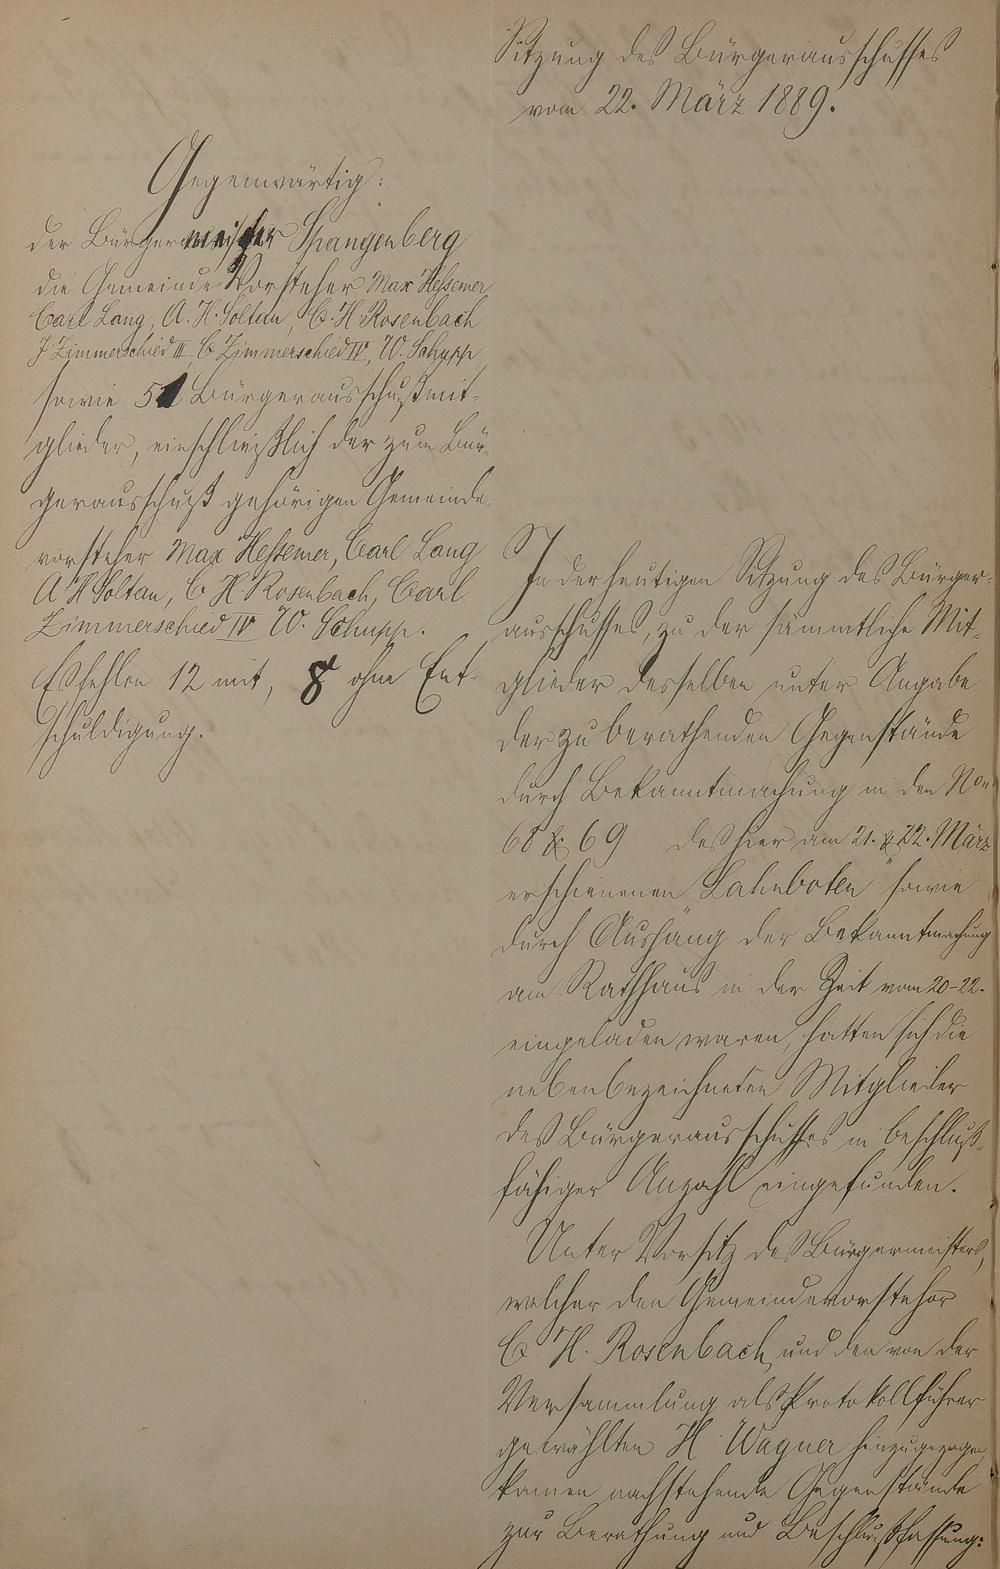 Sitzung des Bürgerausschusses
vom 22. März 1889.
Gegenwärtig:
der Bürgermeister Spangenberg
die Gemeinde Vorsteher Max Hessemer
Carl Lang, A. H. Soltan, C. H. Rosenbach
J. Zimmerschied III, C Zimmerschied IV, W. Schupp
sowie 51 Bürgerausschußmit-
glieder, einschließlich der zum Bür-
gerausschuß gehörigen Gemeinde-
vorsteher Max Hessemer, Carl Lang
A H Soltan, C H Rosenbach, Carl
Zimmerschied IV W. Schupp.
Es fehlen 12 mit, 8 ohne Ent-
schuldigung.
In der heutigen Sitzung des Bürger-
ausschusses, zu der sämmtliche Mit-
glieder desselben unter Angabe
der zu berathenden Gegenstände
durch Bekanntmachung in den No
68 & 69 des hier am 21. & 22. März
erschienenen "Lahnboten" sowie
durch Aushang der Bekanntmachung
am Rathhaus in der Zeit vom 20-22.
eingeladen waren, hatten sich die
nebenbezeichneten Mitglieder
des Bürgerausschusses in beschluß-
fähiger Anzahl eingefunden.
Unter Vorsitz des Bürgermeisters,
welcher den Gemeindevorsteher
C H. Rosenbach und den von der
Versammlung als Protokollführer
gewählten H Wagner hinzugezogen
kamen nachstehende Gegenstände
zur Berathung und Beschlußfassung: